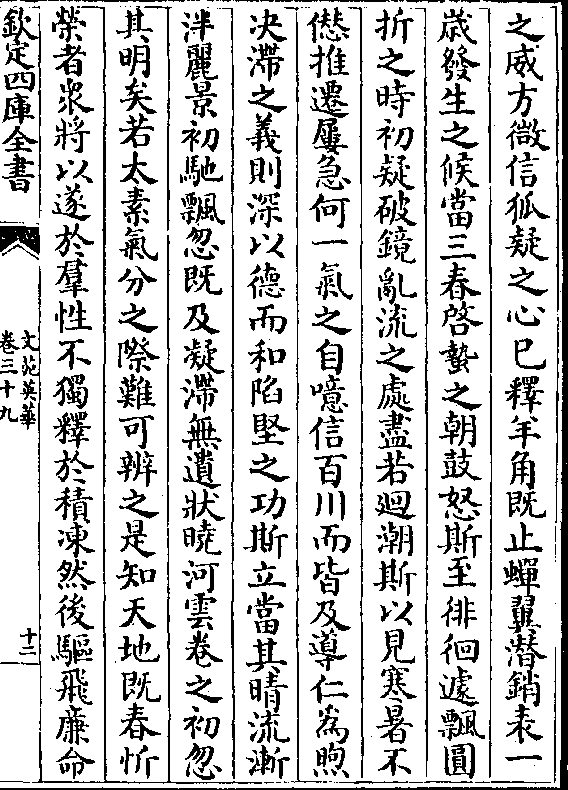 之威方微信狐疑之心已釋羊角既止蟬翼潜銷表一
歲發生之候當三春啓蟄之朝鼓怒斯至徘徊遽飄圓
折之時初疑破鏡亂流之處盡若迴潮斯以見寒暑不
僁推遷屢急何一氣之自噫信百川而皆及導仁為煦
决滯之義則深以德而和陷堅之功斯立當其晴流漸
泮麗景初馳飄忽既及凝滯無遺狀曉河雲卷之初忽
其明矣若太素氣分之際難可辨之是知天地既春忻
榮者衆將以遂於羣性不獨釋於積凍然後驅飛廉命
欽定四庫全書
文苑英華
卷三十九
十二